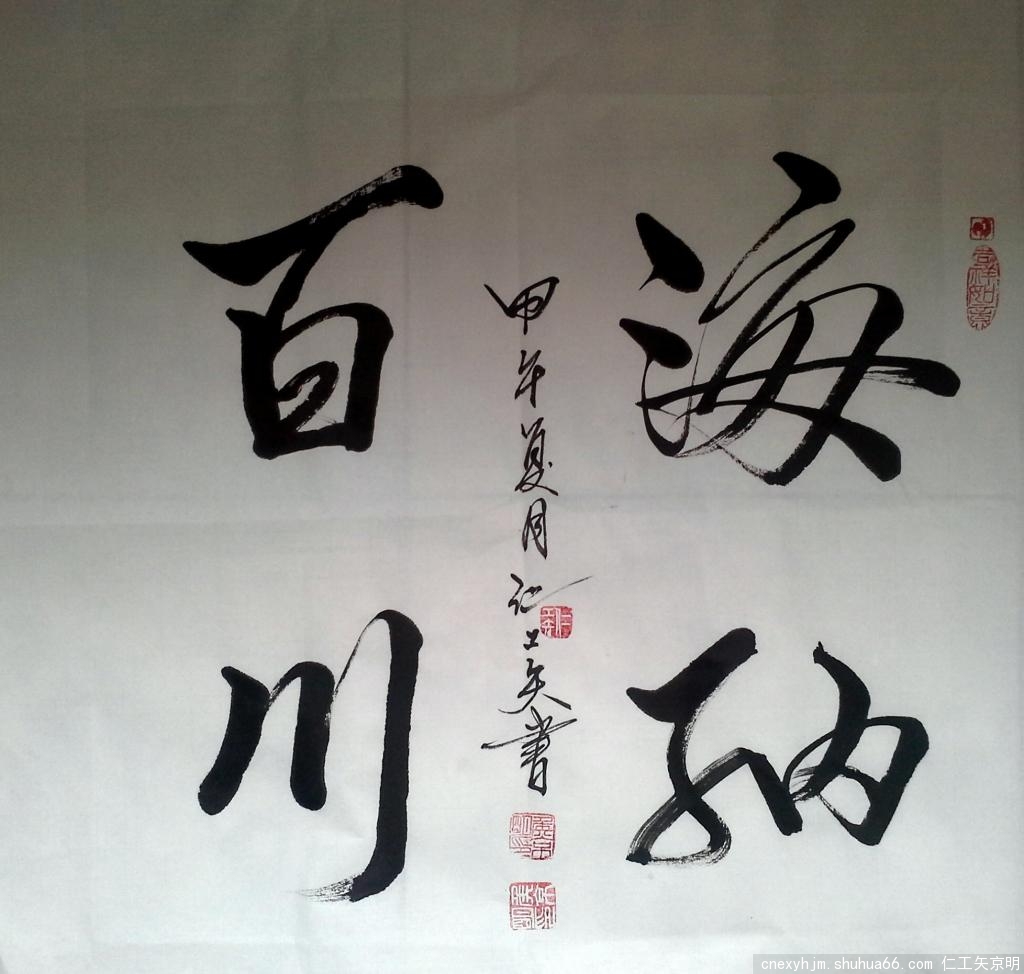 海纳
百川
甲午夏月仁工矢書
吉祥如意
cnexyhjm.shuhua66.com 仁工矢京明